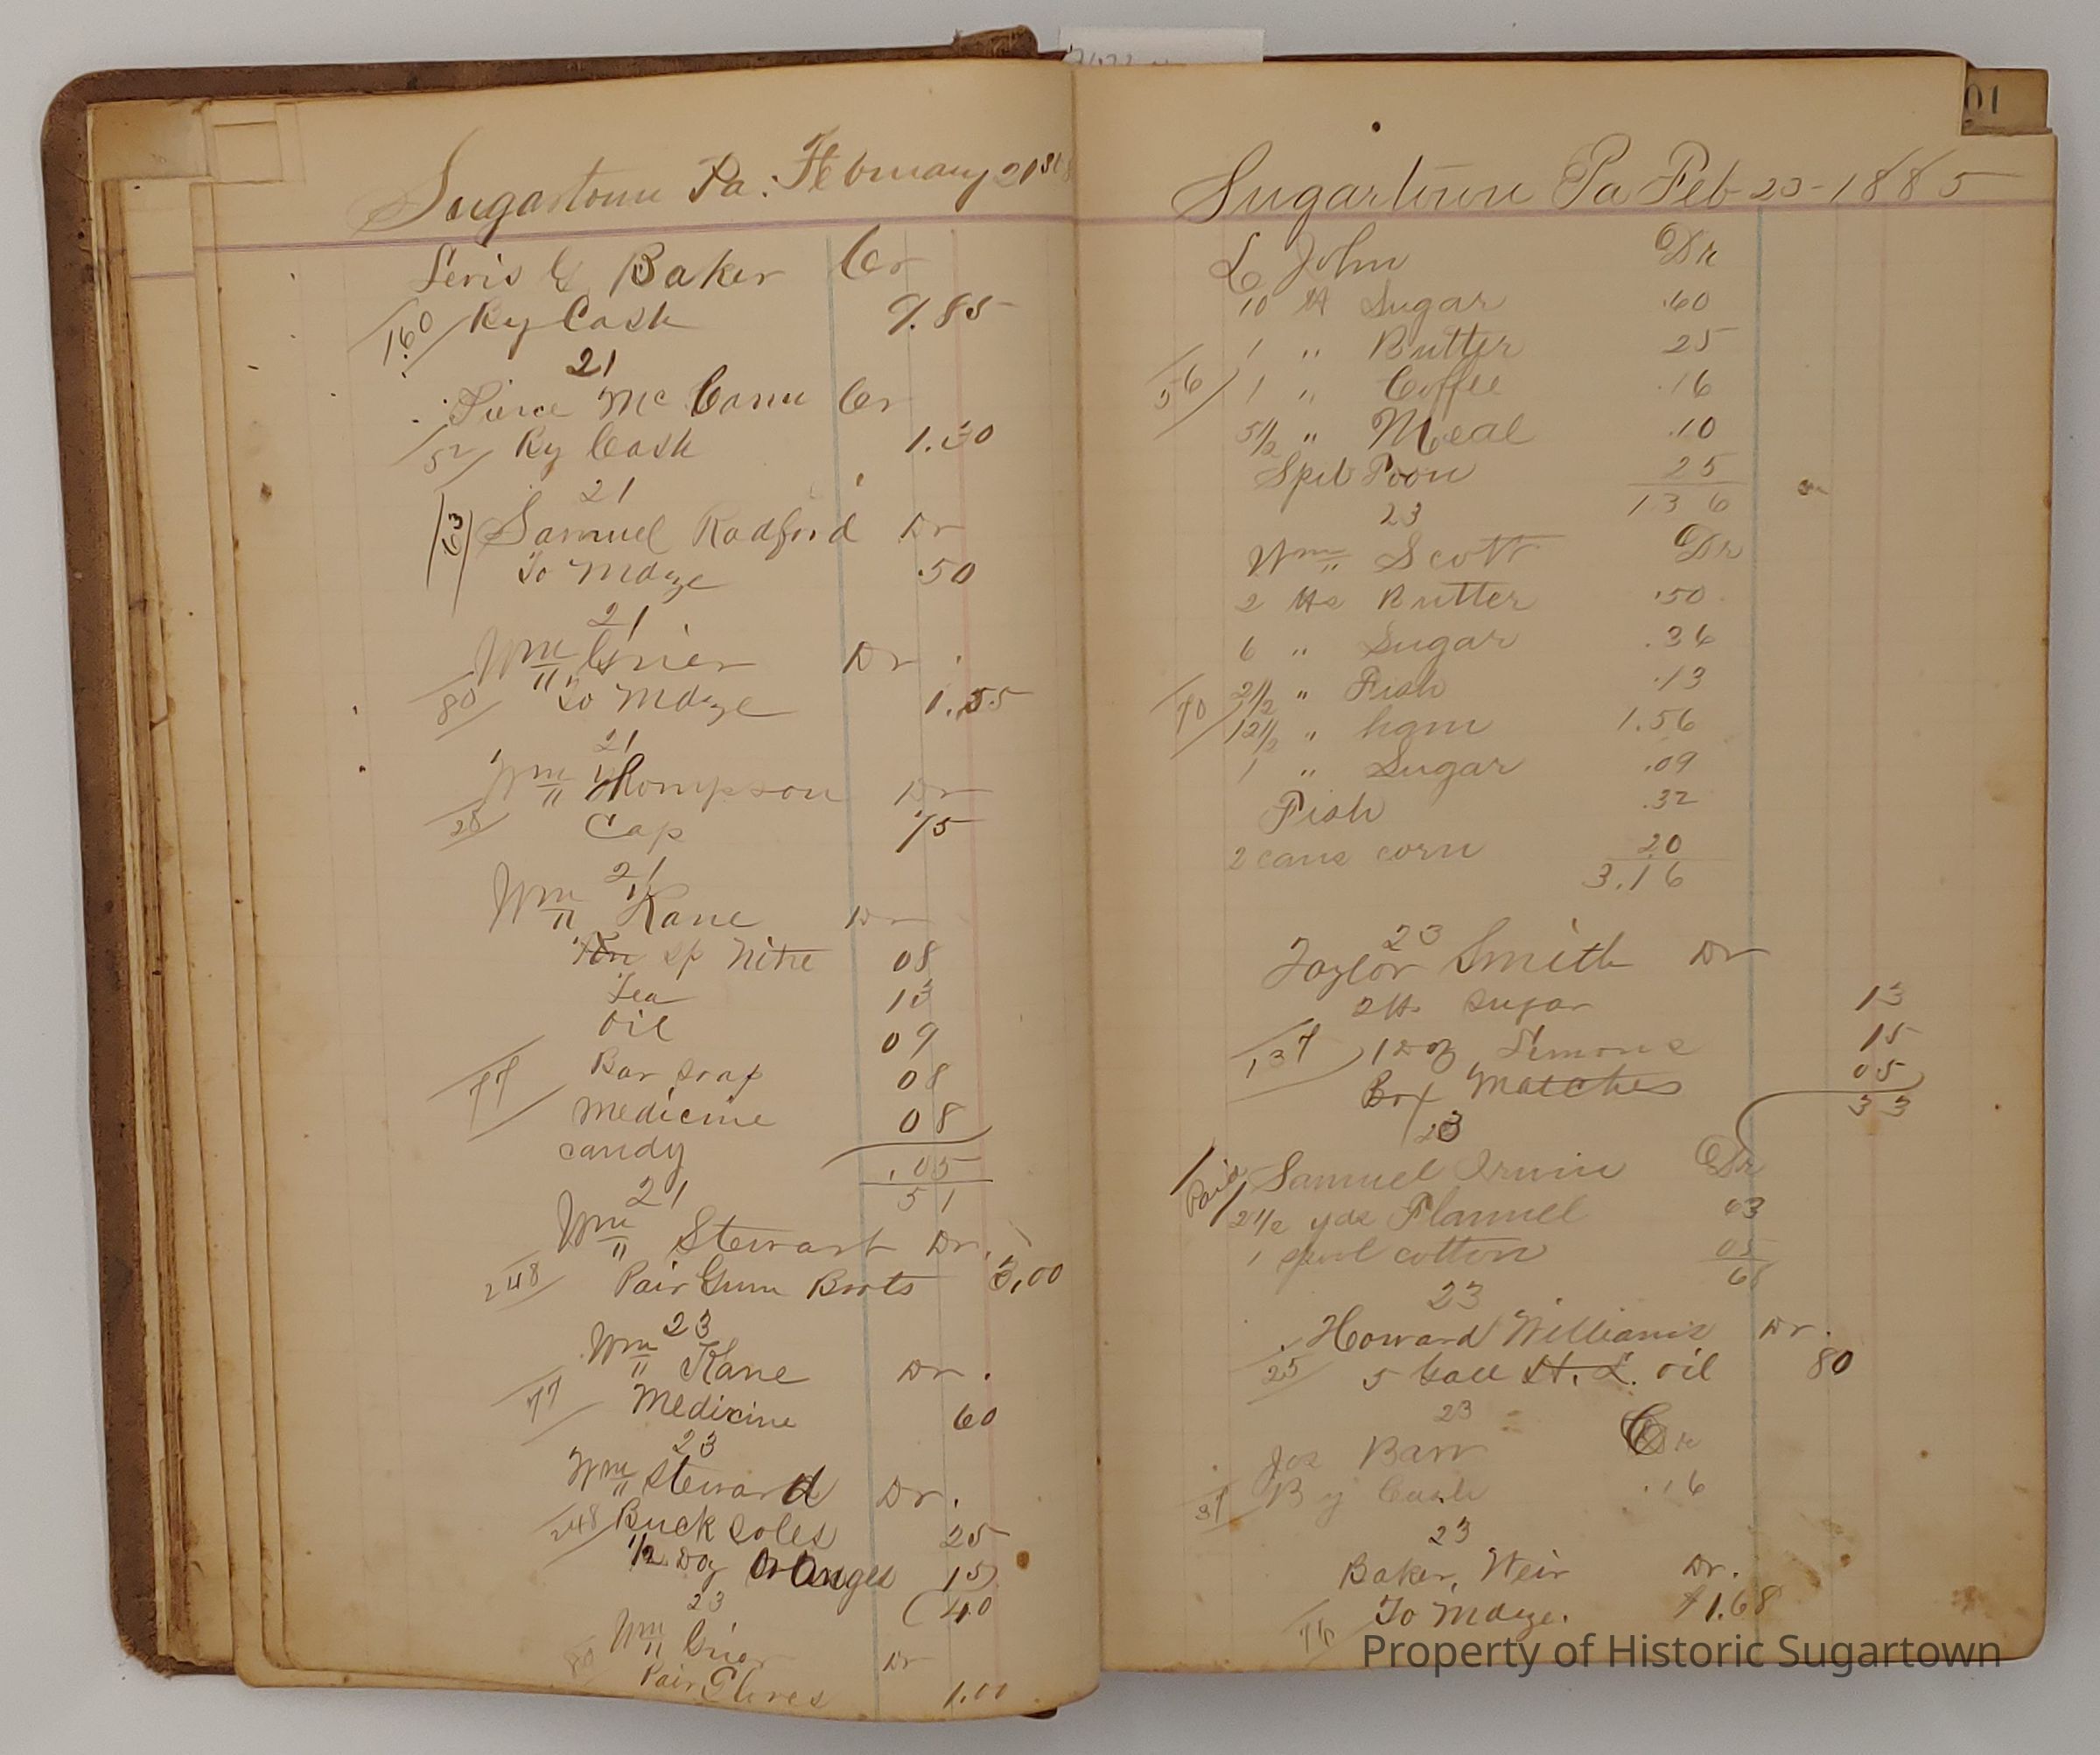 01
Sugartown Pa. February 21st
Baker Cr
160 By Cash 9.85
21
Pierce McCann Cr
52 By Cash 1.30
21
63 Samuel Radford Dr
To Mdze .50
21
Wm Grier Dr
80 To Mdze 1.55
21
Wm Thompson Dr
28 Cap 75
21
Wm Kane Dr
sp Nitre 08
Tea 13
Oil 09
77 Bar soap 08
Medicine 08
candy .05
51
21
Wm Stewart Dr.
248 Pair Gum Boots 3.00
23
Wm Kane Dr.
77 Medicine 60
23
Wm Steward Dr.
248 Buck Soles 25
1/2 Doz Oranges 15
40
23
Wm Grier Dr
80 Pair Gloves 1.00
Sugartown Pa Feb 23-1885
L John Dr
10 lb Sugar .60
1 " Butter 25
56 1 " Coffee .16
5 1/2 " Meal .10
Spit Toon 25
1 36
23
Wm Scott Dr
2 lbs Butter .50
6 " Sugar .36
70 2 1/2 " Fish .13
12 1/2 " ham 1.56
1 " Sugar .09
Fish .32
2 cans corn 20
3.16
23
Taylor Smith Dr
2 lb. Sugar 13
137 1 Doz Lemons 15
Box Matches 05
33
23
Paid Samuel Irwin Dr
2 1/2 yds Flannel 63
1 spool cotton 05
68
23
Howard Williams Dr.
25 5 Gall H. L. oil 80
23
Jos Barr Cr
31 By Cash .16
23
Baker, Weir Dr.
76 To Mdze. $1.68
Property of Historic Sugartown